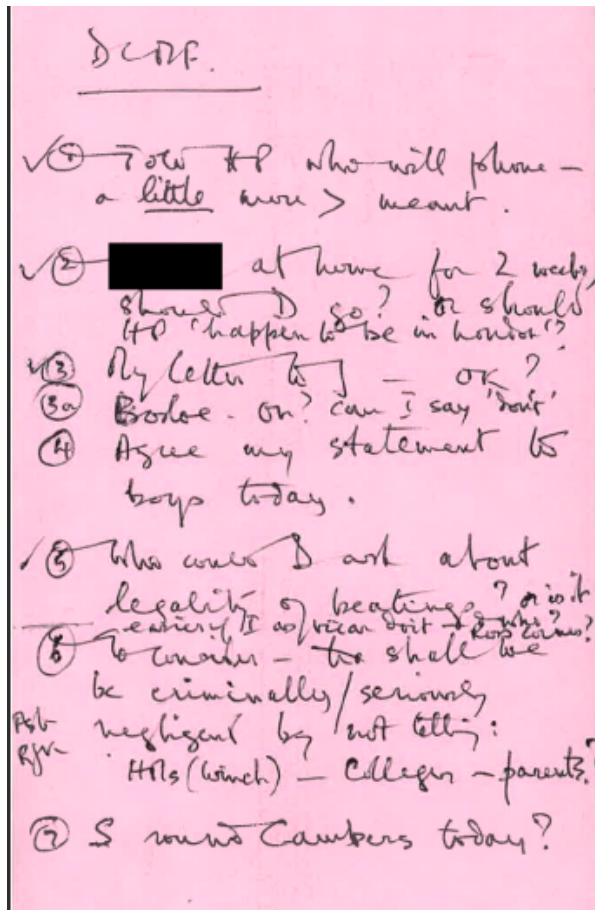 DCMF.
✓ ① Told HP who will phone –
a little more > meant.
✓ ② at home for 2 weeks,
should D go? or should
HP 'happen to be in London'?
✓ ③ My letter to J – OK?
③a – on? can I say 'don't'
④ Agree my statement to
boys today.
✓ ⑤ Who could D ask about
legality of beatings? or is it
easier if I as vicar do it – & who?
⑥ To consider – shall we
be criminally/seriously
negligent by not telling:
HMs (Winch) – Colleges – parents?
⑦ S round Cambers today?